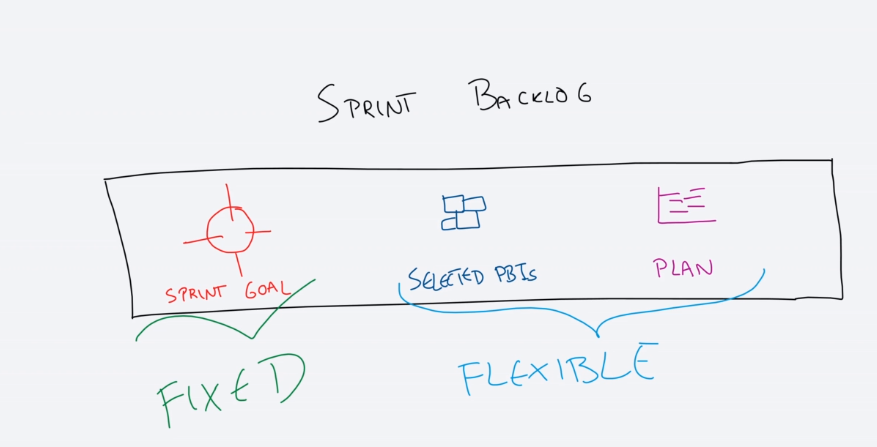 SPRINT BACKLOG
SPRINT GOAL
SELECTED PBIs
PLAN
FIXED
FLEXIBLE